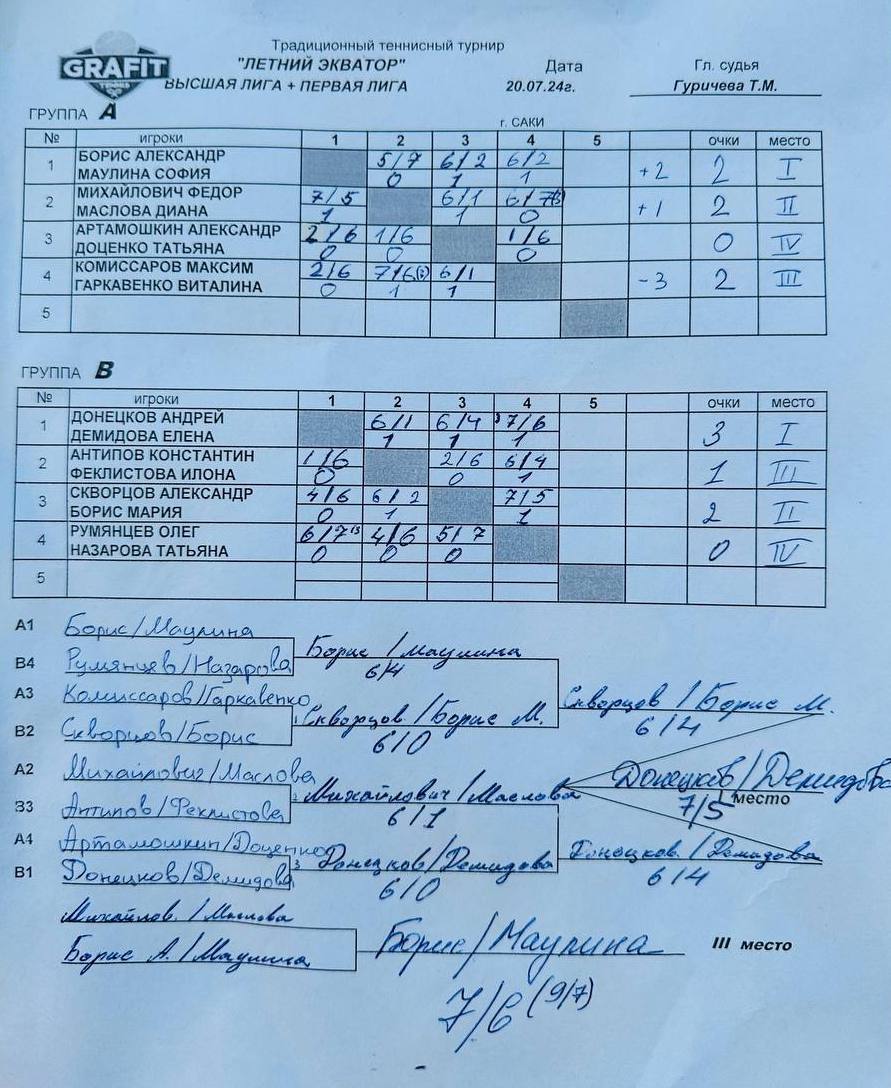 GRAFIT
TENNIS
Традиционный теннисный турнир
"ЛЕТНИЙ ЭКВАТОР"
ВЫСШАЯ ЛИГА + ПЕРВАЯ ЛИГА
Дата
20.07.24г.
Гл. судья
Гуричева Т.М.
ГРУППА A
г. САКИ
№ игроки 1 2 3 4 5 очки место
1 БОРИС АЛЕКСАНДР 5/7 6/2 6/2 +2 2 I
МАУЛИНА СОФИЯ 0 1 1
2 МИХАЙЛОВИЧ ФЕДОР 7/5 6/1 6/7 +1 2 II
МАСЛОВА ДИАНА 1 1 0
3 АРТАМОШКИН АЛЕКСАНДР 2/6 1/6 1/6 0 IV
ДОЦЕНКО ТАТЬЯНА 0 0 0
4 КОМИССАРОВ МАКСИМ 2/6 7/6 6/1 -3 2 III
ГАРКАВЕНКО ВИТАЛИНА 0 1 1
5
ГРУППА B
№ игроки 1 2 3 4 5 очки место
1 ДОНЕЦКОВ АНДРЕЙ 6/1 6/4 7/6 3 I
ДЕМИДОВА ЕЛЕНА 1 1 1
2 АНТИПОВ КОНСТАНТИН 1/6 2/6 6/4 1 III
ФЕКЛИСТОВА ИЛОНА 0 0 1
3 СКВОРЦОВ АЛЕКСАНДР 4/6 6/2 7/5 2 II
БОРИС МАРИЯ 0 1 1
4 РУМЯНЦЕВ ОЛЕГ 6/7 4/6 5/7 0 IV
НАЗАРОВА ТАТЬЯНА 0 0 0
5
A1 Борис/Маулина
Борис/Маулина
6/4
B4 Румянцев/Назарова
A3 Комиссаров/Гаркавенко
Скворцов/Борис М.
6/4
Скворцов/Борис М.
6/0
B2 Скворцов/Борис
A2 Михайлович/Маслова
Донецков/Демидова
7/5
место
Михайлович/Маслова
6/1
B3 Антипов/Феклистова
A4 Артамошкин/Доценко
Донецков/Демидова
6/0
Донецков/Демидова
6/4
B1 Донецков/Демидова
Михайлов./Маслова
Борис А./Маулина
Борис/Маулина
III место
7/6 (9/7)